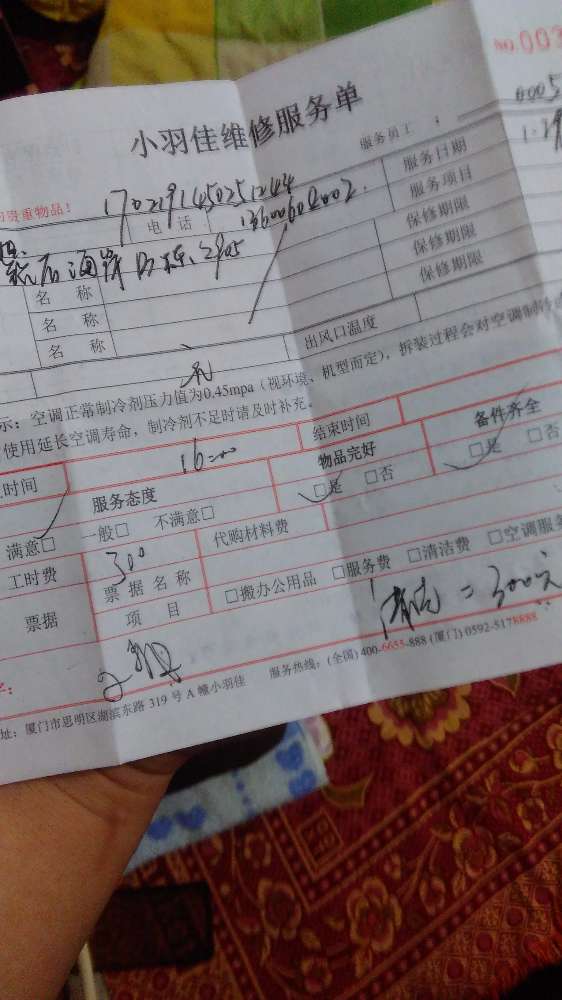 NO.003
小羽佳维修服务单
0005
服务员工：
贵重物品！
1702191450251244
服务日期
1.29
电话
13600602002
服务项目
2905
保修期限
名称
保修期限
名称
保修期限
名称
出风口温度
示：空调正常制冷剂压力值为0.45mpa（视环境、机型而定），拆装过程会对空调制冷
使用延长空调寿命，制冷剂不足时请及时补充。
时间
16
结束时间
服务态度
物品完好
备件齐全
满意□ 一般□ 不满意□
□是 □否
□是 □否
工时费
300
代购材料费
票据
票据名称
□搬办公用品 □服务费 □清洁费 □空调服务
项目
= 300元
址：厦门市思明区湖滨东路319号A幢小羽佳 服务热线：(全国)400-6655-888 (厦门)0592-5178888